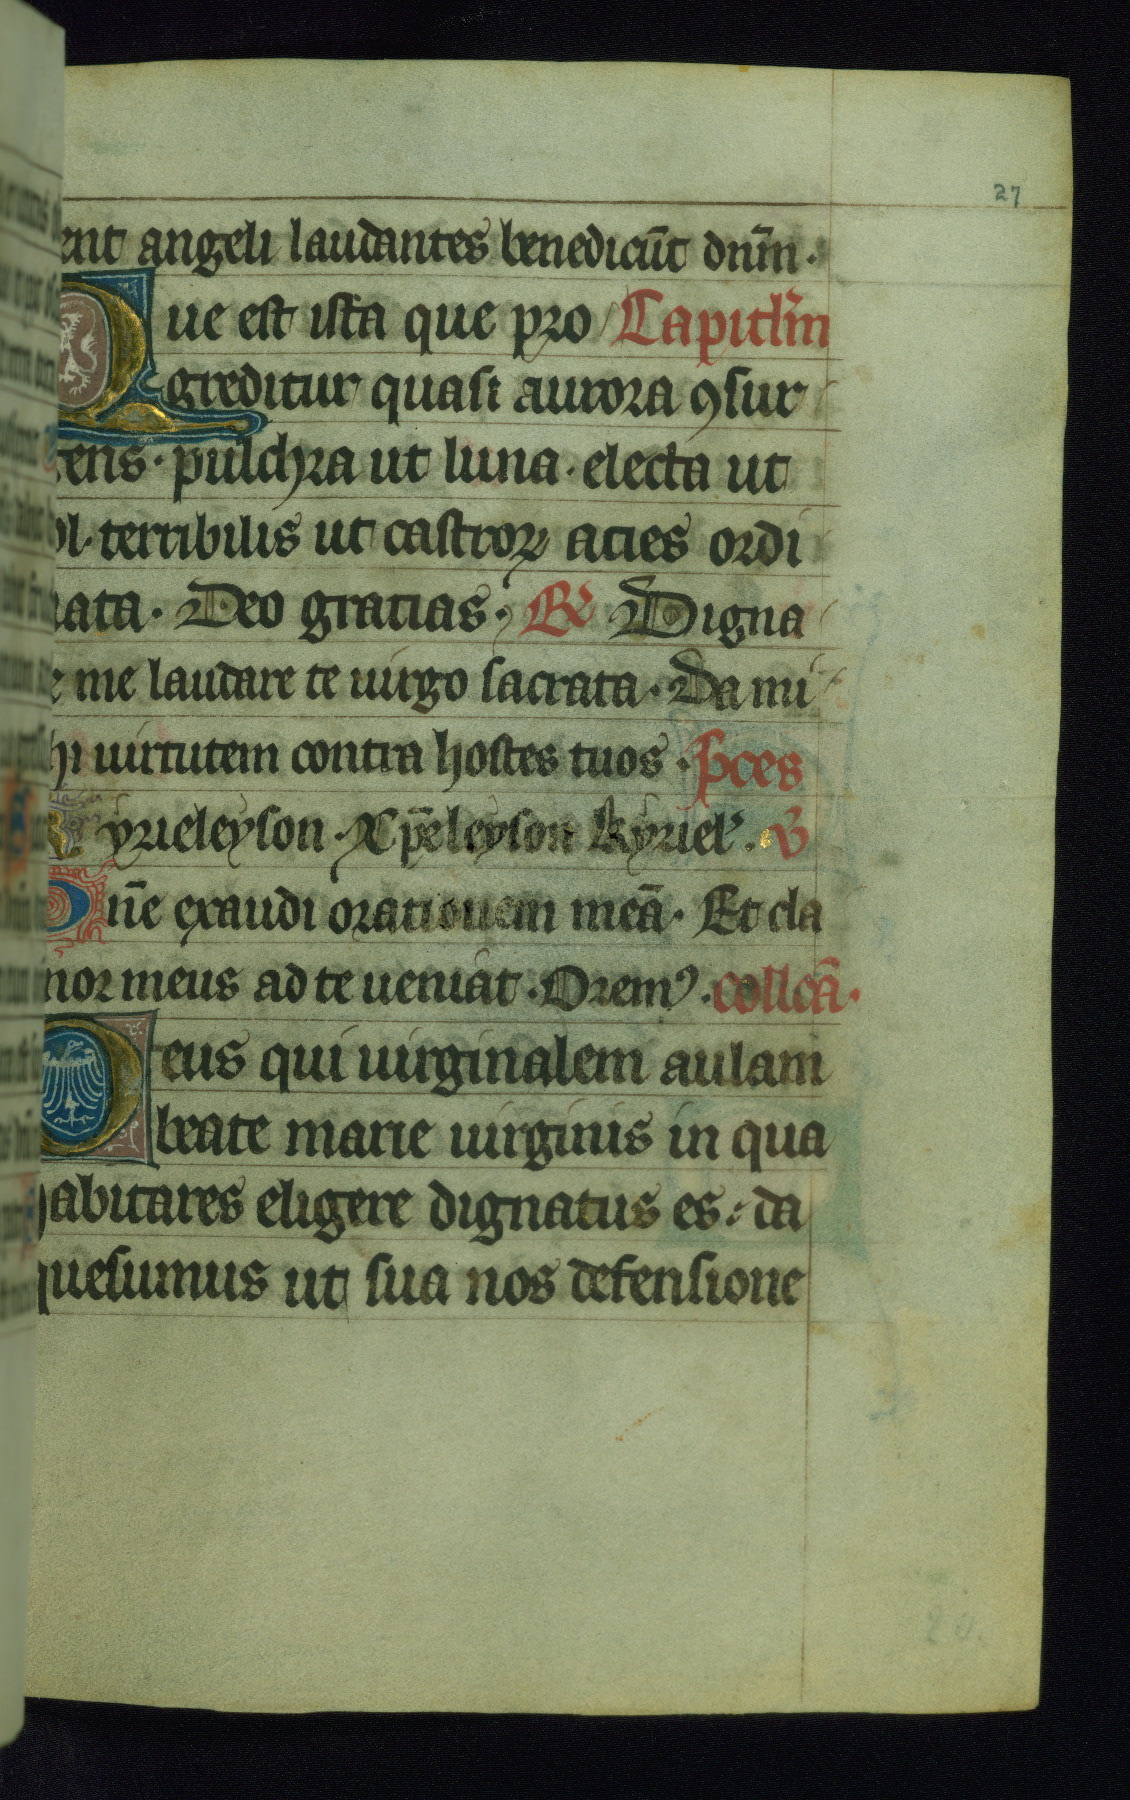 27
ent angeli laudantes benedicūt dnm̄.
Que est ista que pro Capitl'm
greditur quasi aurora ꝯsur
gens. pulchra ut luna. electa ut
ol. terribilis ut castroꝝ acies ordi
nata. Deo gratias. ℟ Digna
e me laudare te uirgo sacrata. Da mi
hi uirtutem contra hostes tuos. p̄ces
Kyrieleyson. Xp̄eleyson kyriel'. ℣
Dn̄e exaudi orationem meā. Et cla
mor meus ad te ueniat. Oremꝰ. collcā.
Deus qui uirginalem aulam
beate marie uirginis in qua
habitares eligere dignatus es: da
quesumus ut sua nos defensione